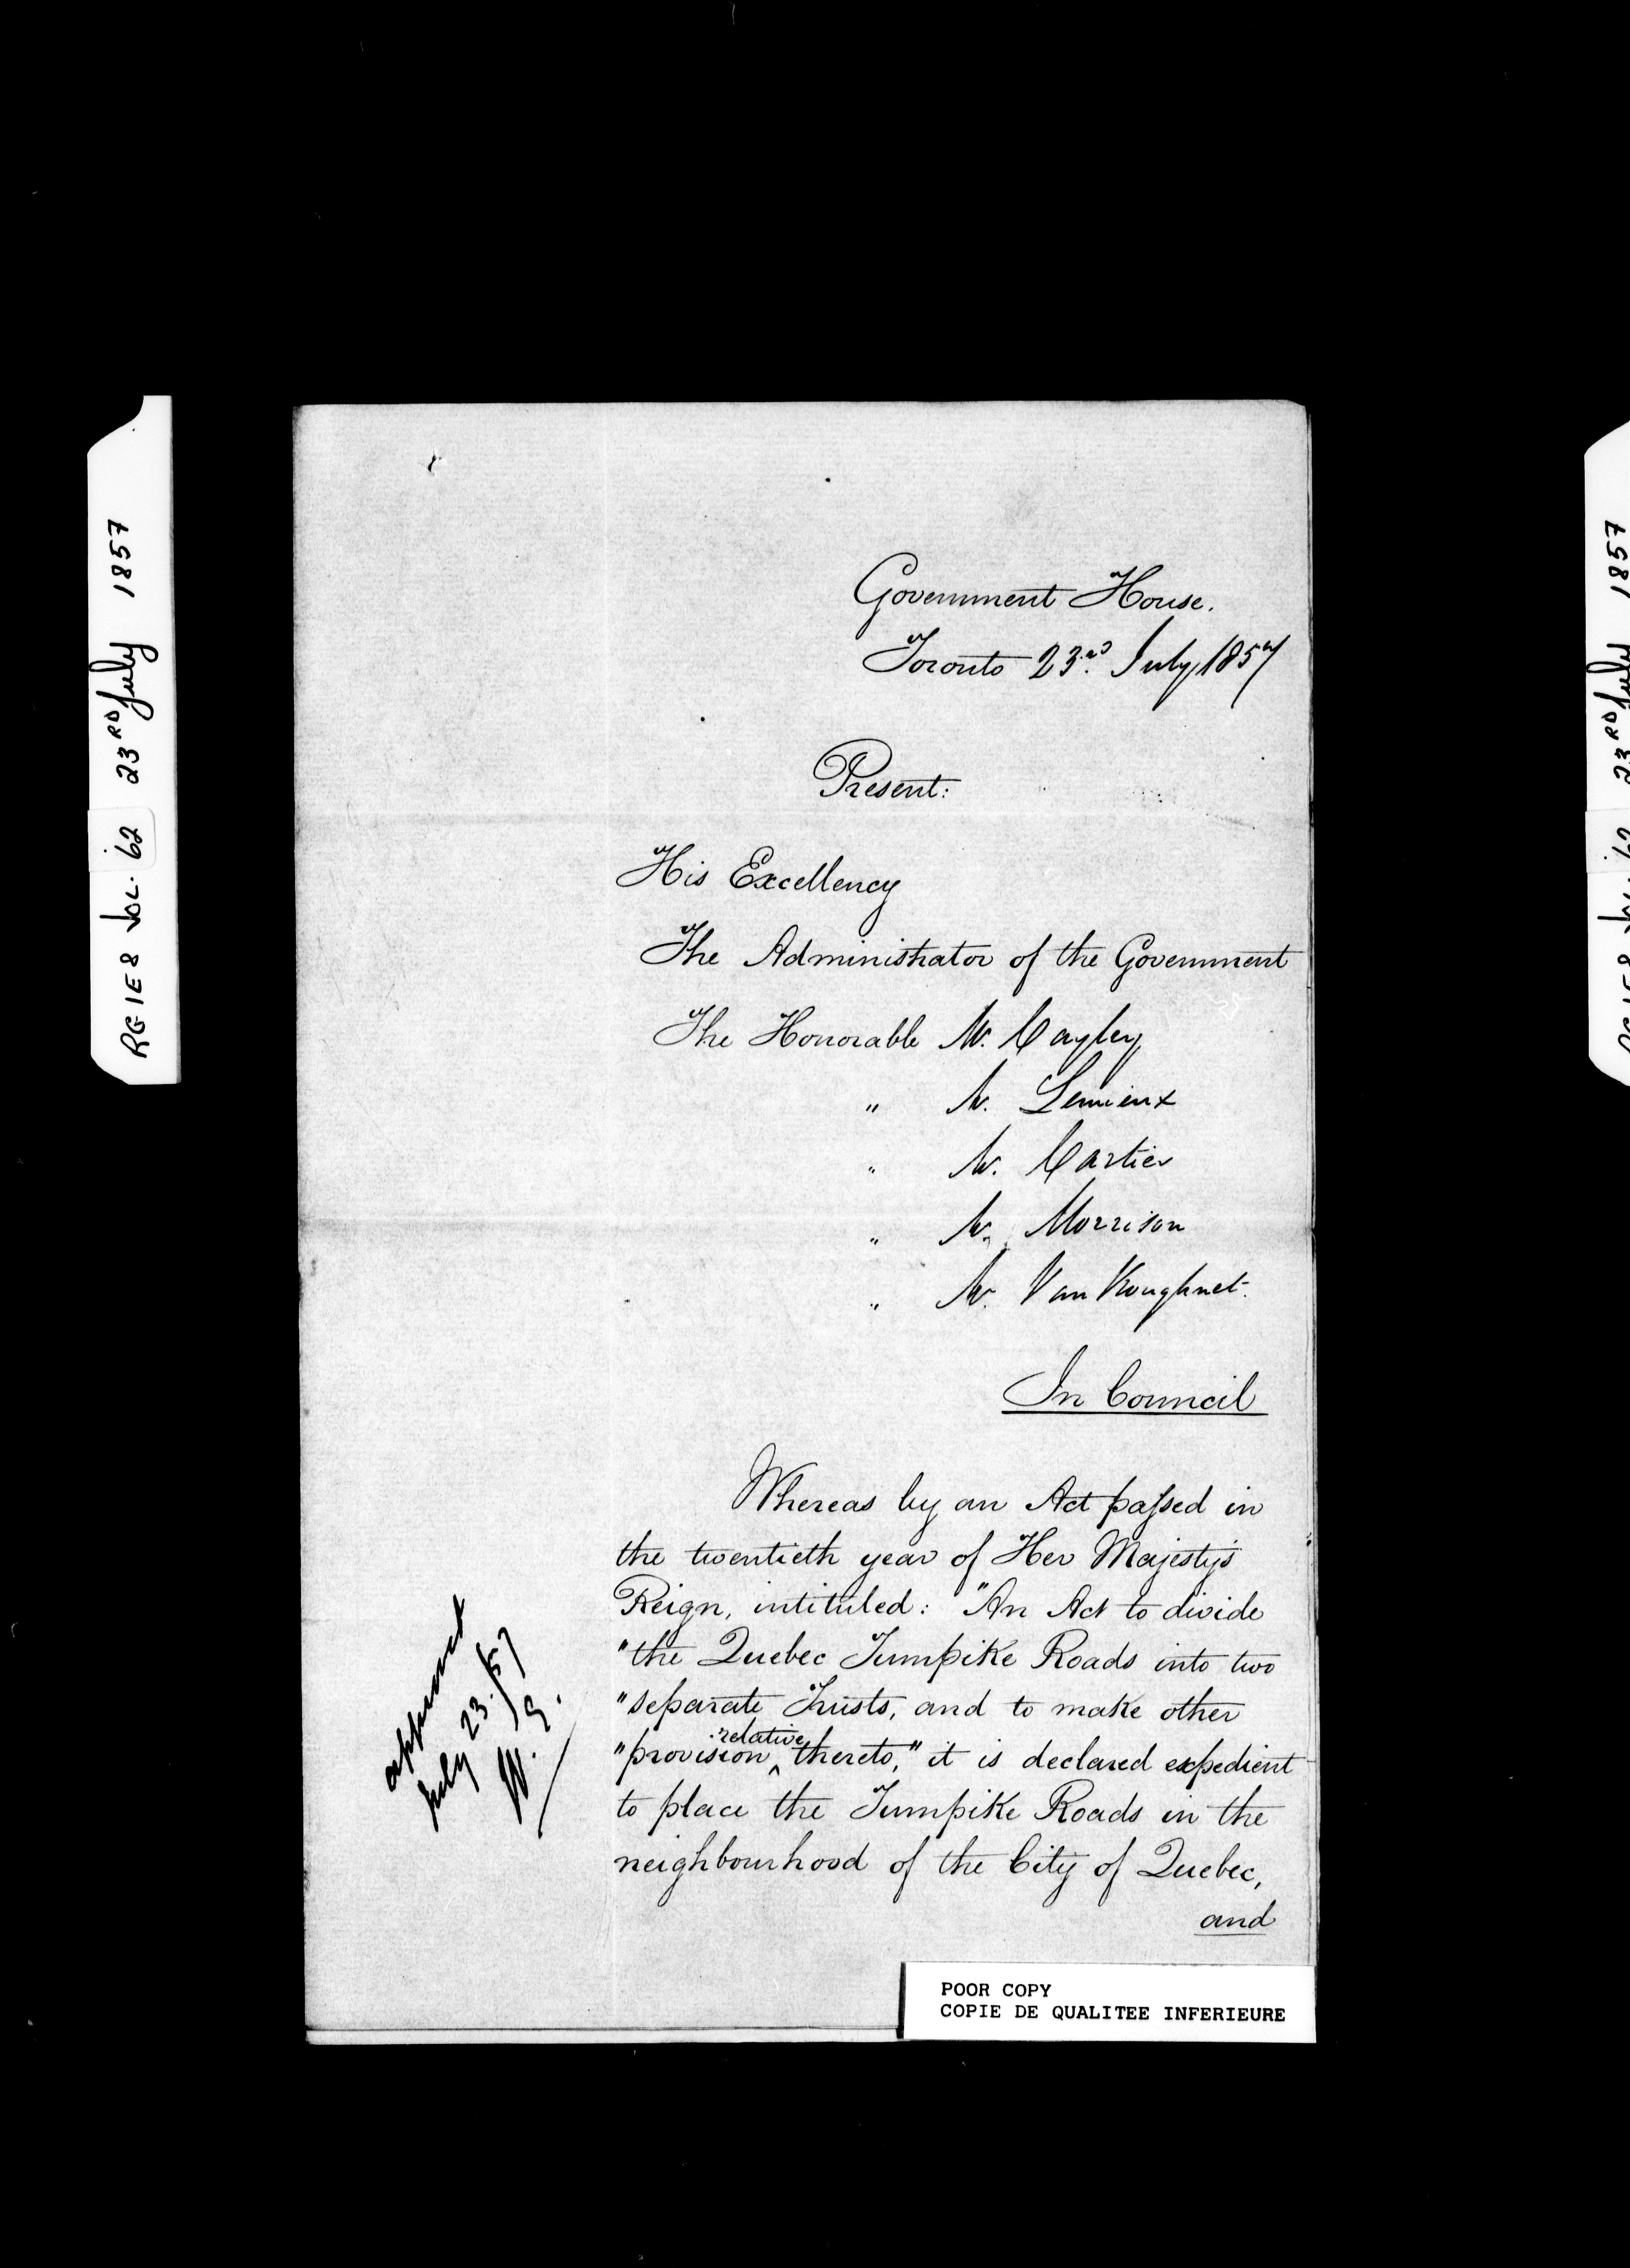 RG 1 E8 VOL. 62 23RD July 1857
Government House.
Toronto 23rd July, 1857
Present:
His Excellency
The Administrator of the Government
The Honorable Mr. Cayley
" Mr. Lemieux
" Mr. Cartier
" Mr. Morrison
" Mr. VanKoughnet.
In Council
Whereas by an Act passed in
the twentieth year of Her Majesty's
Reign, intituled: "An Act to divide
"the Quebec Turnpike Roads into two
"separate Trusts, and to make other
"provision relative thereto," it is declared expedient
to place the Turnpike Roads in the
neighbourhood of the City of Quebec,
and
approved
July 23./57
W. E.
POOR COPY
COPIE DE QUALITEE INFERIEURE
1857
23RD July